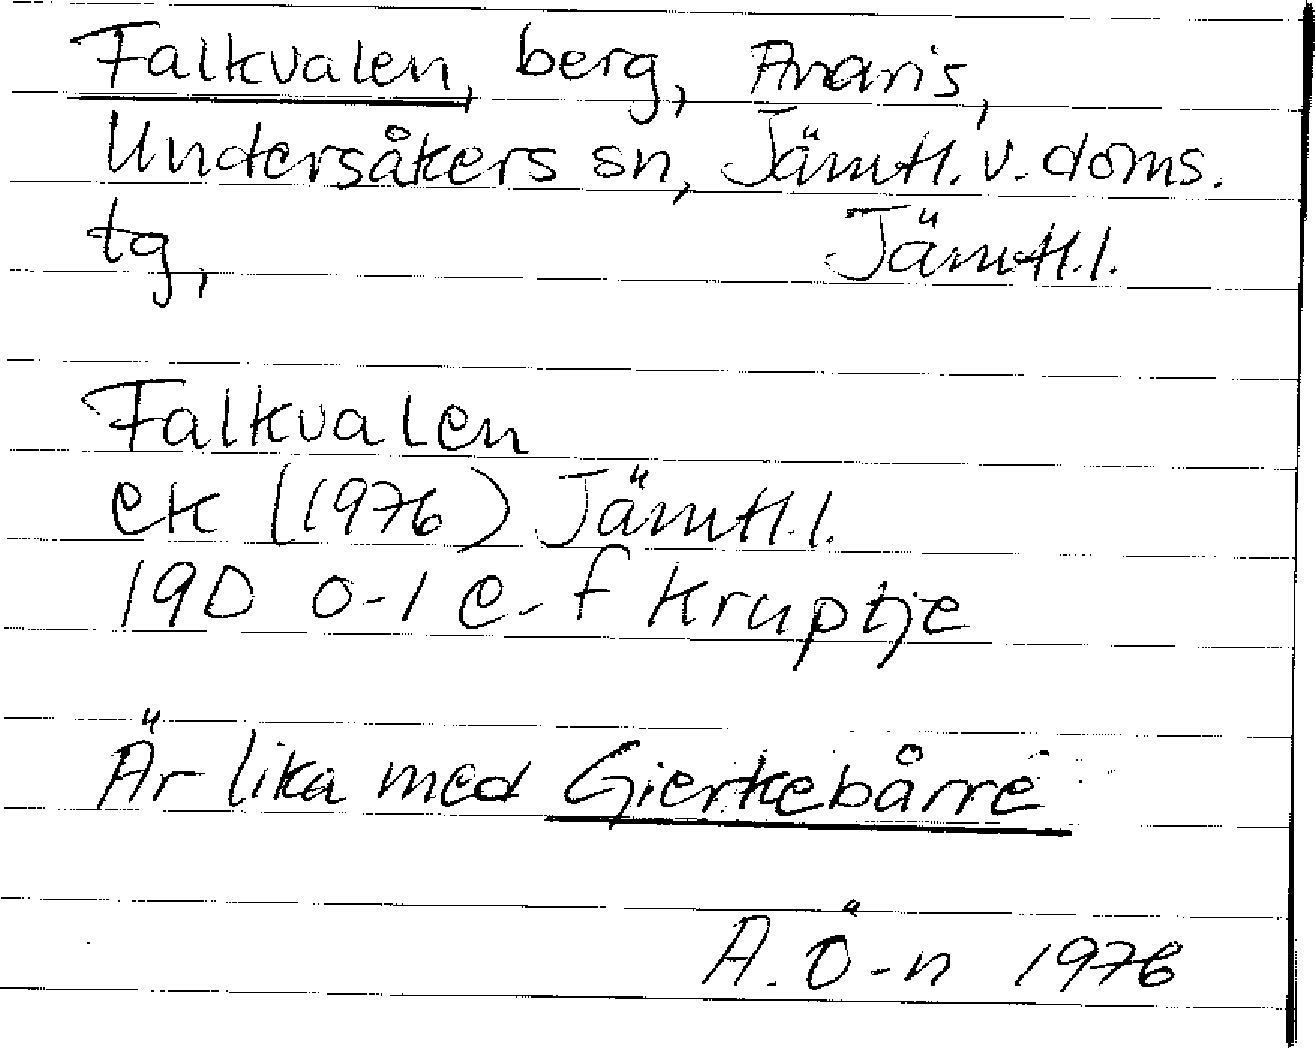 Falkvalen, berg, Anaris,
Undersåkers sn, Jämtl. v. doms.
tg, Jämtl.l.
Falkvalen
ek (1976) Jämtl.l.
19D 0-1 e-f Kruptje
Är lika med Gierkebårre
A. Ö-n 1976